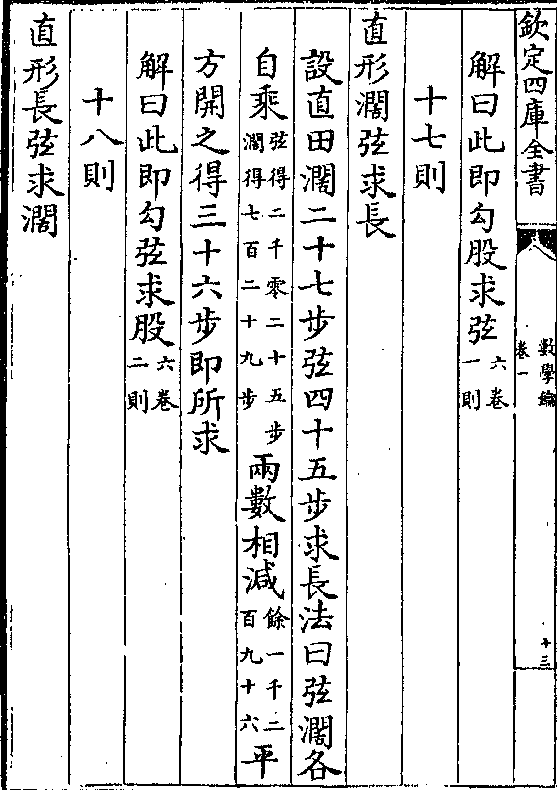 欽定四庫全書
數學鑰
卷一
十三
解曰此即勾股求弦六卷一則
十七則
直形濶弦求長
設直田濶二十七步弦四十五步求長法曰弦濶各
自乘弦得二千零二十五步濶得七百二十九步兩數相減餘一千二百九十六平
方開之得三十六步即所求
解曰此即勾弦求股六卷二則
十八則
直形長弦求濶